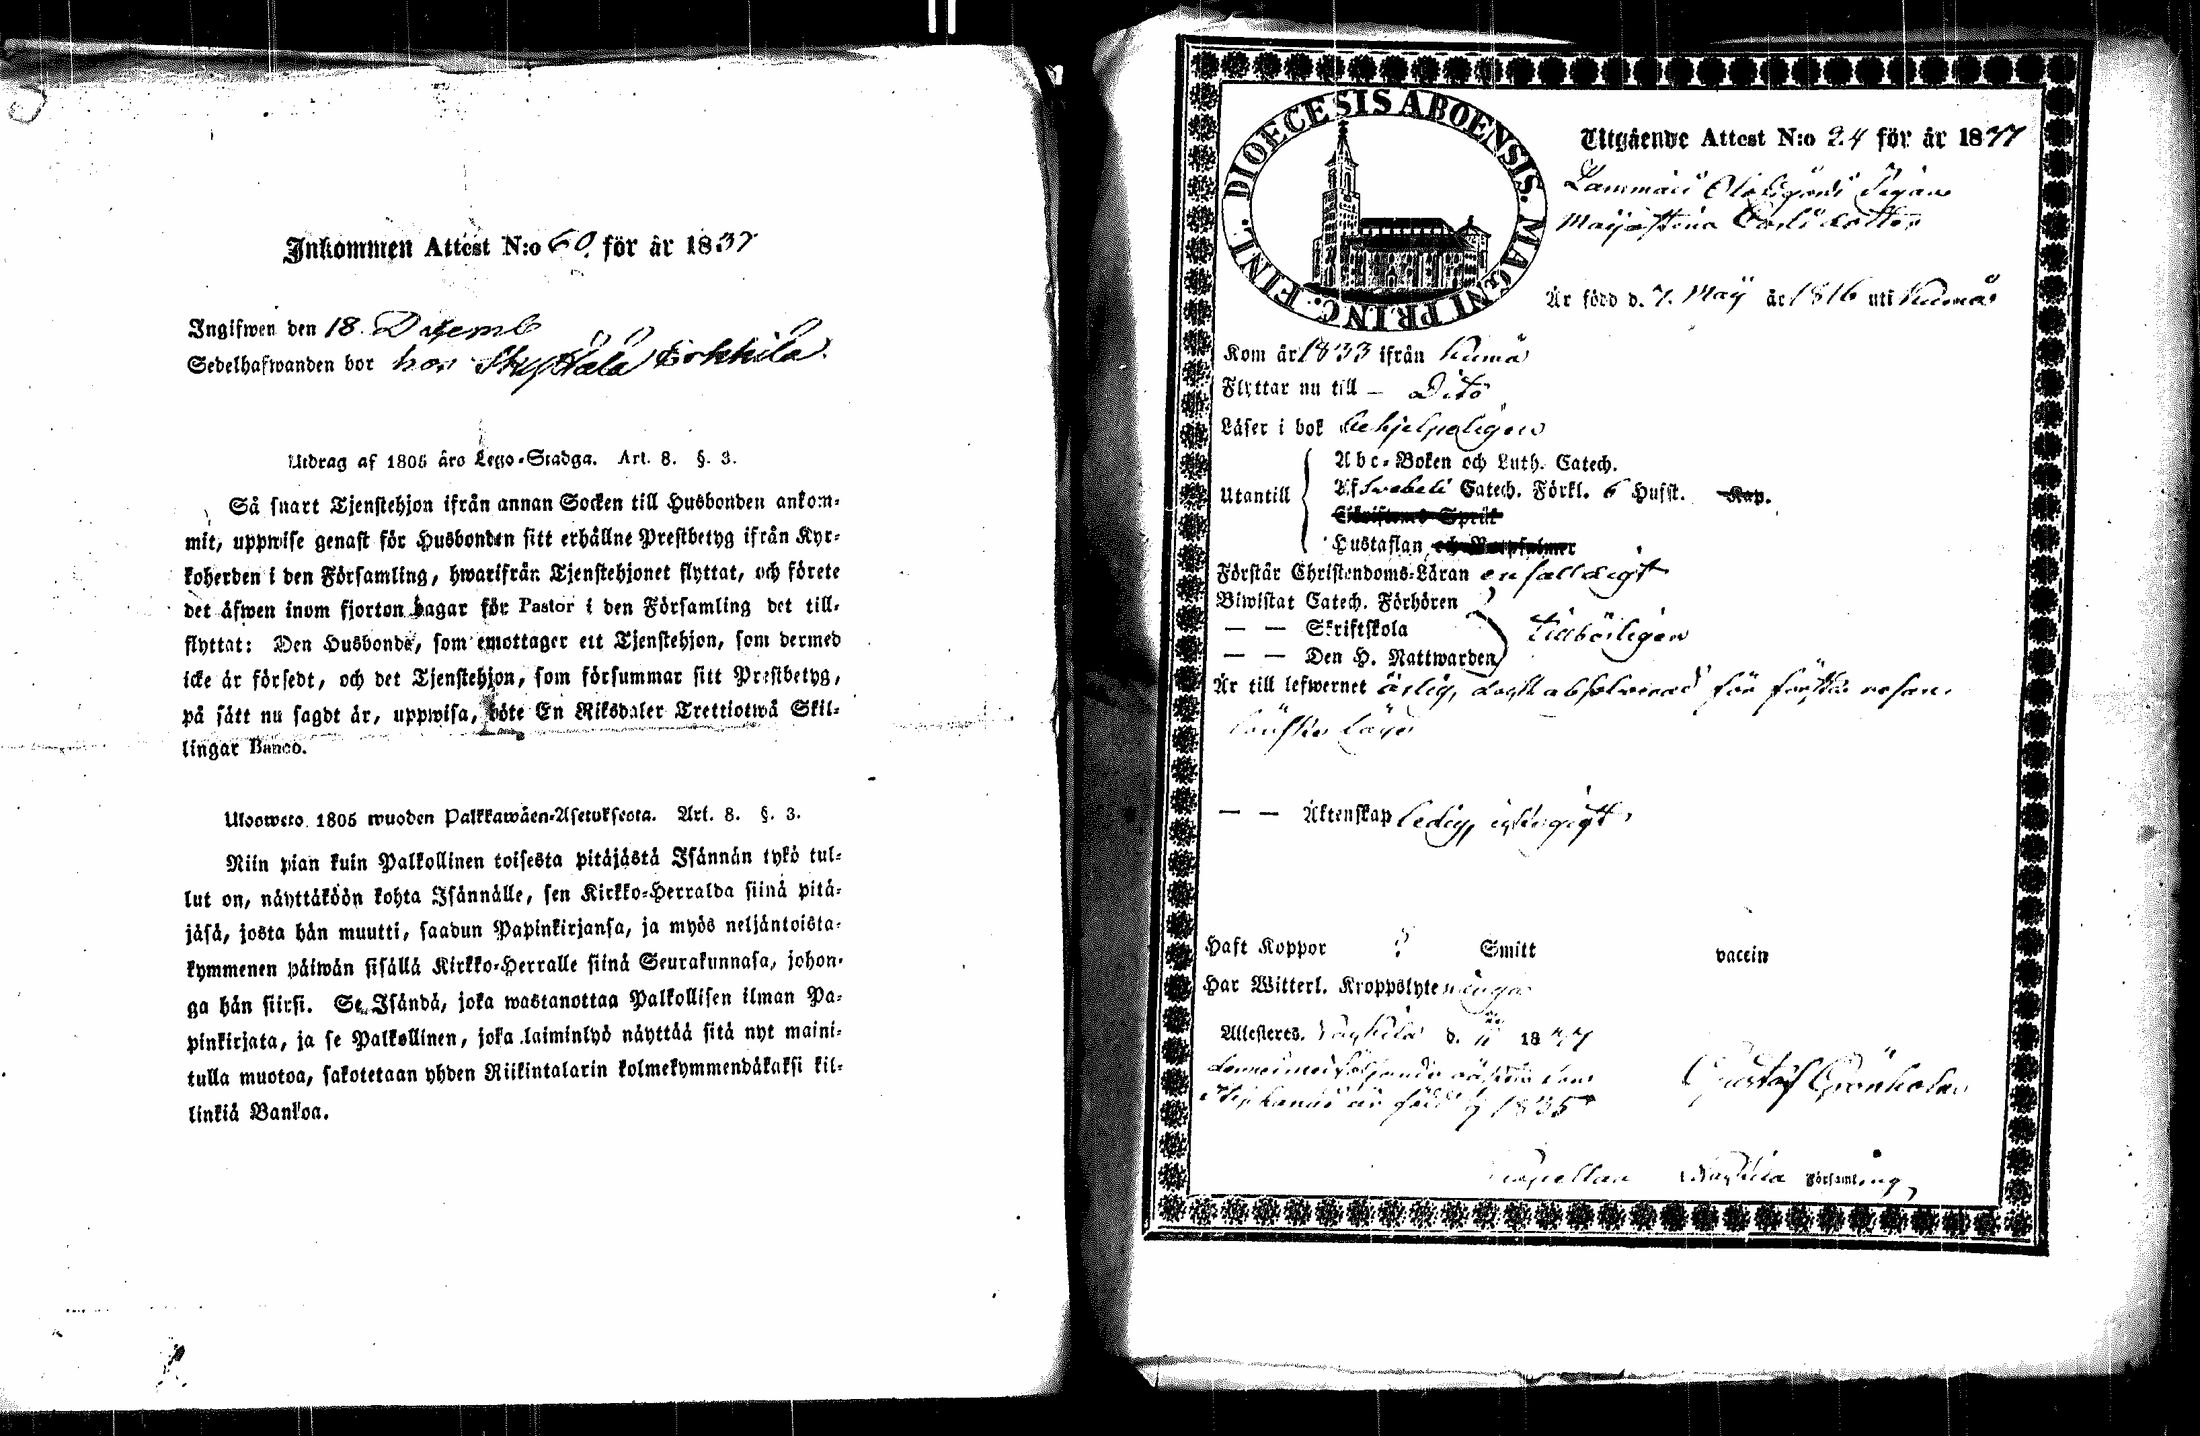 Inkommen Attest N:o 60. för år 1837
Ingifwen den 18. Decemb
Sedelhafwanden bor hos Skyttälä Erkkilä.
Utdrag af 1805 års Lego-Stadga. Art. 8. §. 3.
Så snart Tjenstehjon ifrån annan Socken till Husbonden ankom-
mit, uppwise genast för Husbonden sitt erhållne Prestbetyg ifrån Kyr-
koherden i den Församling, hwarifrån Tjenstehjonet flyttat, och förete
det äfwen inom fjorton dagar för Pastor i den Församling det till-
flyttat: Den Husbonde, som emottager ett Tjenstehjon, som dermed
icke är försedt, och det Tjenstehjon, som försummar sitt Prestbetyg,
på sätt nu sagdt är, uppwisa, böte En Riksdaler Trettiotwå Skil-
lingar Banco.
Ulosweto 1805 wuoden Palkkawäen-Asetuksesta. Art. 8. §. 3.
Niin pian kuin Palkollinen toisesta pitäjästä Isännän tykö tul-
lut on, näyttäköön kohta Isännälle, sen Kirkko-Herralda siinä pitä-
jäsä, josta hän muutti, saadun Papinkirjansa, ja myös neljäntoista-
kymmenen päiwän sisällä Kirkko-Herralle siinä Seurakunnasa, johon-
ga hän siirsi. Se Isändä, joka wastanottaa Palkollisen ilman Pa-
pinkirjata, ja se Palkollinen, joka laiminlyö näyttää sitä nyt maini-
tulla muotoa, sakotetaan yhden Riikintalarin kolmekymmendäkaksi kil-
linkiä Bankoa.
DIOECESIS ABOENSIS. MAGNI PRINC. FINL.
Utgående Attest N:o 24 för år 1837
Pigan
Majastina Carlsdotter
Är född d. 7. Maij år 1816 uti Kumå
Kom år 1833 ifrån Kumå
Flyttar nu till — Dito
Läser i bok behjelpeligen
Abc-Boken och Luth. Catech.
Utantill Af Svebeli Catech. Förkl. 6 Husst. Kap.
Skriftenes Språk
Hustaflan och Botpsalmer
Förstår Christendoms-Läran enfaldigt
Biwistat Catech. Förhören
— — Skriftskola tillbörligen
— — Den H. Nattwarden
Är till lefwernet ärlig, dock absolverad för första resan
löuske läger
— — Äktenskap ledig, ogift
Haft Koppor Smitt vaccin
Har Witterl. Kroppslyten inga
Attesteres. Nakkila d. 18 37
är född 1835
Gustaf Grönholm
Capellan Nakkila Församling